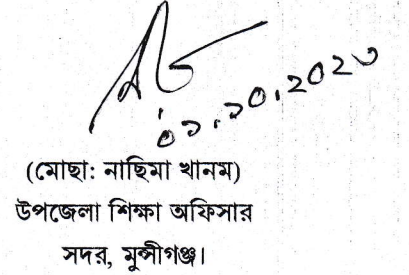 ০১.১০.২০২৩
(মোছা: নাছিমা খানম)
উপজেলা শিক্ষা অফিসার
সদর, মুন্সীগঞ্জ।